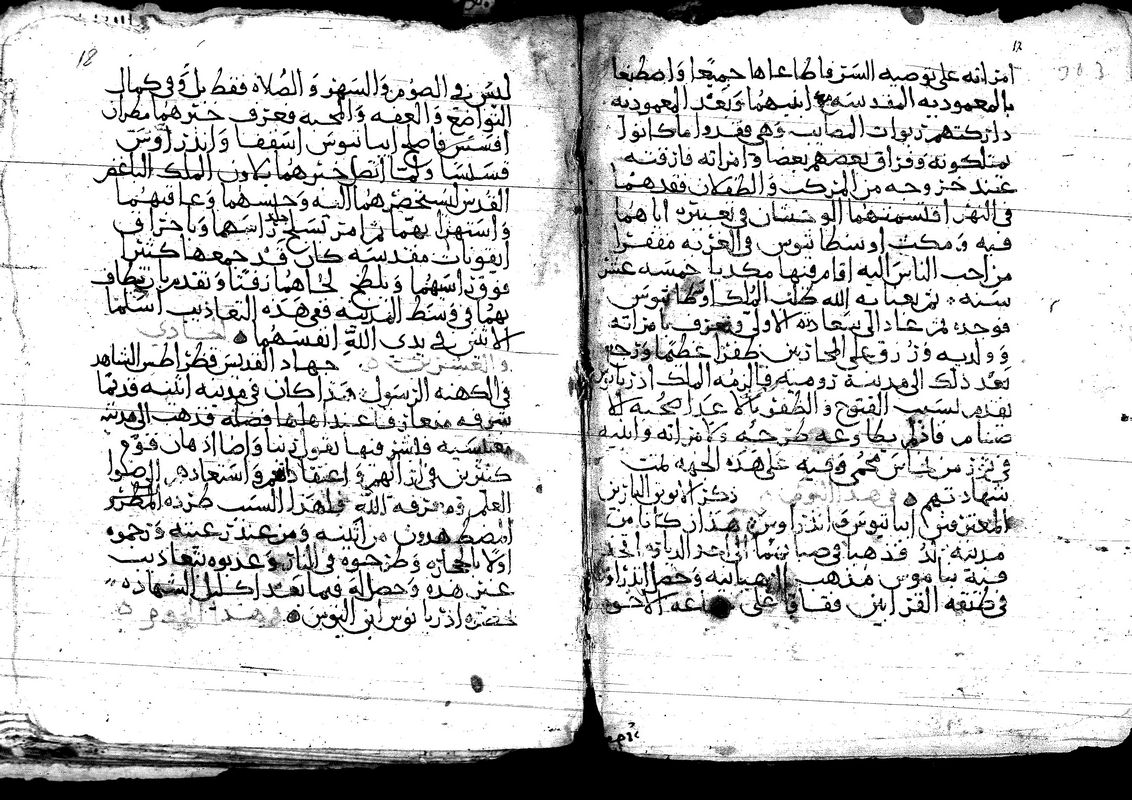 امراته على توصيه السر فاطاعاها جميعا واصطبغا
بالمعموديه المقدسه مع ابنيهما وبعد المعموديه
داركتهم ربوات المصايب وهى فقدوا ما كانوا
يمتلكونه وفراق بعضهم بعضا وامراته فارقته
عند خروجه من المركب والطفلان فقدهما
فى النهر اقتسمتهما الوحشان فى تعبيره اياهما
فيه ومكث اوسطاتيوس فى الغربه مفتقرا
من احب الناس اليه اقام فيها مكديا خمسه عشر
سنه ثم بعنايه الله طلب الملك اوسطاتيوس
فوجده ثم عاد الى سعادته الاولى وتعرف بامراته
وولديه ورزق على المحاربين ظفرا عظيما ورجع
بعد ذلك الى مدينة روميه فالزمه الملك ادريانوس
تقدم لسبب الفتوح والظفر بالاعدا ضحيه الا
صنام فاذ لم يطاوعه طرحه ولامراته وابنيه
فى ثور من نحاس محمى وفيه على هذه الجهه تمت
شهادتهم وفى هذا اليوم ذكر الابوين البارين
المعترفين ابباتيوس واندراوس هذان كانا من
مدينه لد فذهبا فى صبايهما الى احد الديارة اتخذ
فيه يباتيوس مذهب الرهبانيه وحصل اندراوس
فى طبقه القرايين ففاقا على جماعه الاخوه
18
ليس فى الصوم والسهر والصلاة فقط بل وفى كمال
التواضع والعفه والمحبه فعرف خبرهما مطران
افسس فاصلح ايباتيوس اسقفا واندراوس
قسيسا ولما اتصل خبرهما بلاون الملك الناغض
القدس استحضرهما اليه وحبسهما وعاقبهما
واستهزا بهما ثم امر بسلخ جلد راسهما وباحراق
ايقونات مقدسه كان قد جمعها كثير
فوق راسهما وبلطخ لحاهما زفتا وتقدم بان يطاف
بهما فى وسط المدينه ففى هذه التعاذيب اسلما
الاثنين فى يدى الله انفسهما الحادى
والعشرين جهاد القديس قدراطس الشاهد
فى الكهنه الرسول هذا كان فى مدينه اثينه قديما
شرفه متعارفا عند اهلها فضله فذهب الى مدينه
مغنيسيه فاشرق فيها بقول ربنا واضا اذهان قوم
كثيرين فى ارايهم واعتقادهم واستعادهم الى ضوا
العلم ومعرفه الله فلهذا السبب طرده المطرو
المضطهدون من اثينه ومن عند رعيته ورجموه
اولا بالحجاره وطرحوه فى النار وعذبوه بتعاذيب
غير هذه وحصل له فيما بعد اكليل الشهاده
حضره ادريانوس ابن اليوس وفى هذا اليوم